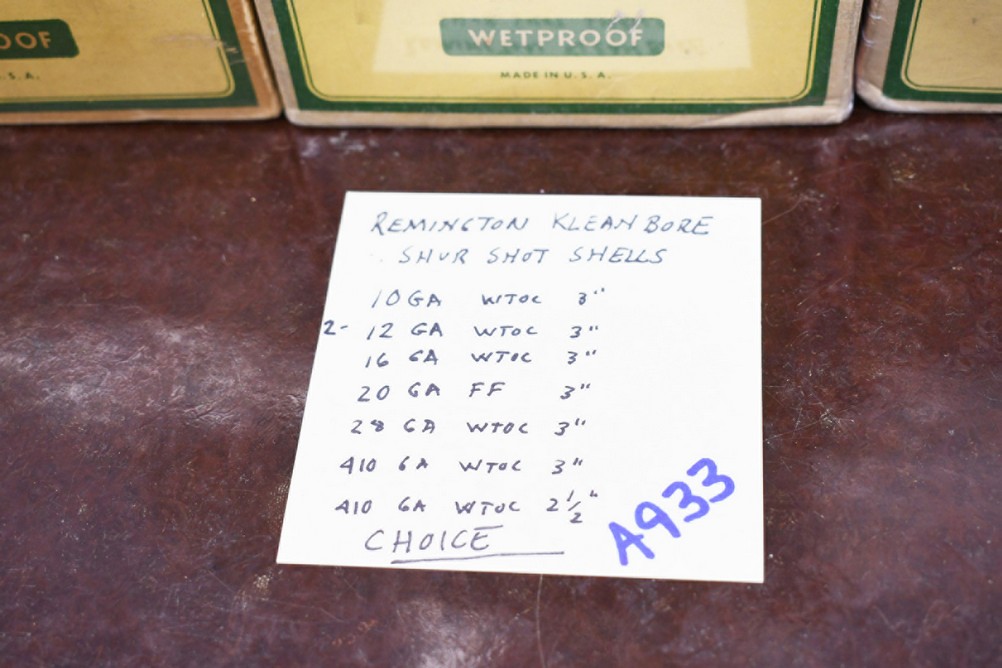 OOF
S. A.
WETPROOF
MADE IN U. S. A.
REMINGTON KLEANBORE
SHUR SHOT SHELLS
10 GA WTOC 3"
2- 12 GA WTOC 3"
16 GA WTOC 3"
20 GA FF 3"
28 GA WTOC 3"
410 GA WTOC 3"
410 GA WTOC 2 1/2"
CHOICE
A933